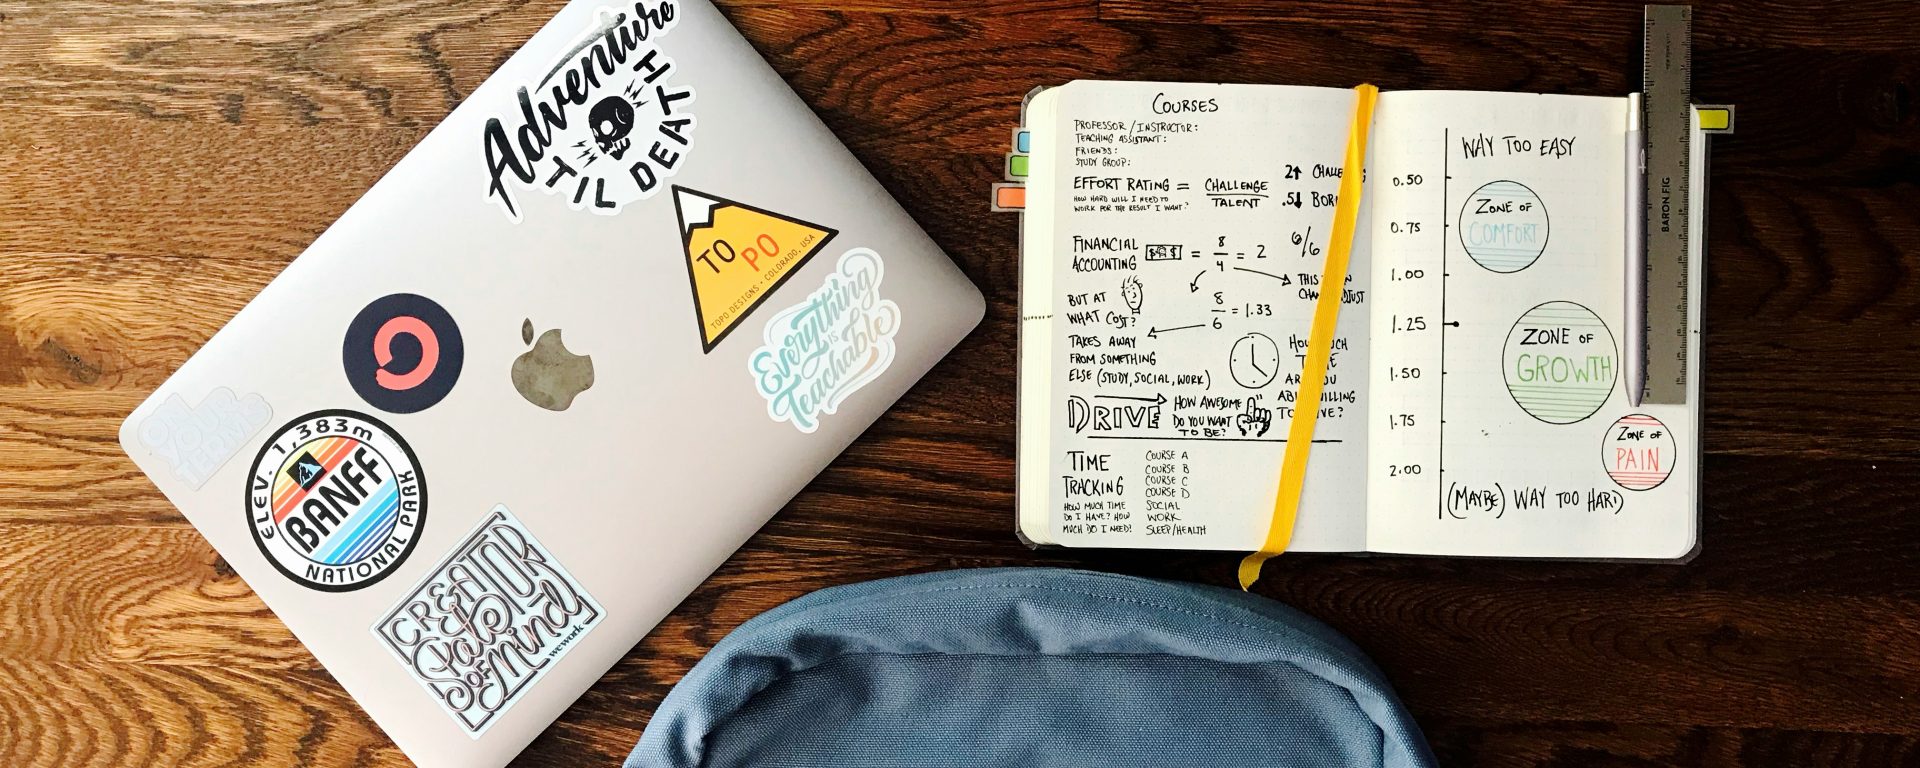 Adventure
TIL DEATH
TO PO
TOPO DESIGNS · COLORADO, USA
Everything
is
Teachable
ON
YOUR
TERMS
ELEV. 1,383m
BANFF
NATIONAL PARK
CREATOR
State
OF
Mind
wework
COURSES
PROFESSOR / INSTRUCTOR:
TEACHING ASSISTANT:
FRIENDS:
STUDY GROUP:
EFFORT RATING = CHALLENGE
TALENT
HOW HARD WILL I NEED TO
WORK FOR THE RESULT I WANT?
2↑
.5↓
FINANCIAL
ACCOUNTING
$ $ = 8/4 = 2
6/6
THIS
BUT AT
WHAT COST?
8/6 = 1.33
TAKES AWAY
FROM SOMETHING
ELSE (STUDY, SOCIAL, WORK)
DRIVE
HOW AWESOME
DO YOU WANT
TO BE?
TIME
TRACKING
HOW MUCH TIME
DO I HAVE? HOW
MUCH DO I NEED?
COURSE A
COURSE B
COURSE C
COURSE D
SOCIAL
WORK
SLEEP/HEALTH
WAY TOO EASY
0.50
0.75
1.00
1.25
1.50
1.75
2.00
ZONE OF
COMFORT
ZONE OF
GROWTH
ZONE OF
PAIN
(MAYBE) WAY TOO HARD
BARON FIG